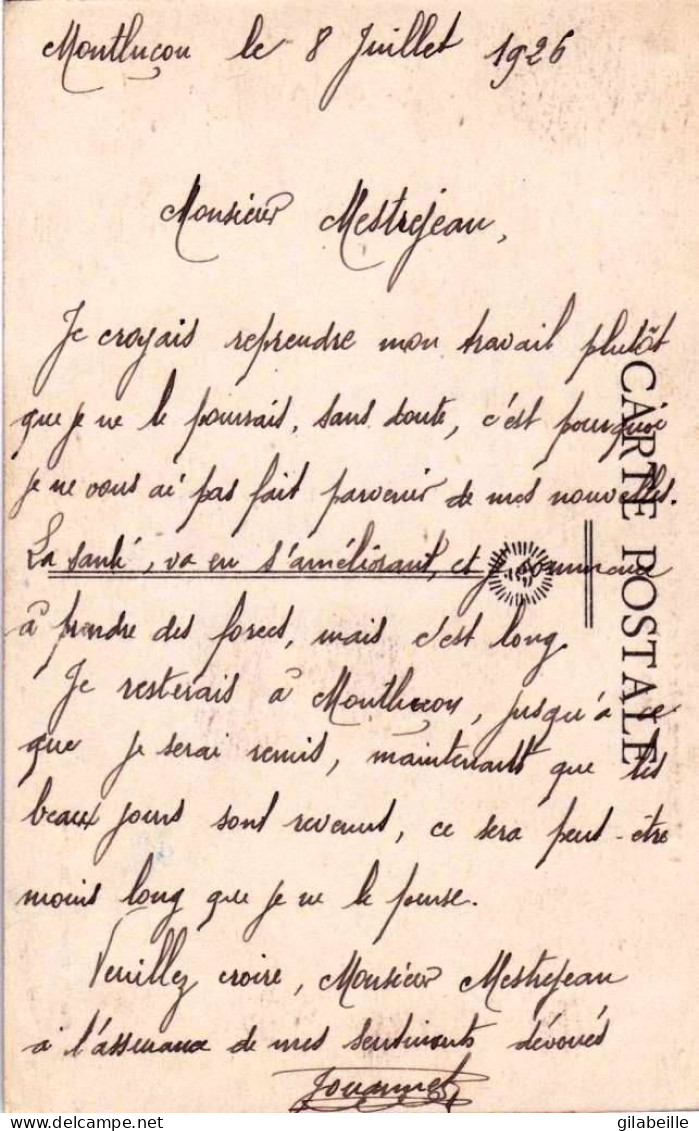 Montluçon le 8 Juillet 1926
Monsieur Mestrejean,
Je croyais reprendre mon travail plutôt
que je ne le pourrais, sans doute, c'est pourquoi
je ne vous ai pas fait parvenir de mes nouvelles.
La santé, va en s'améliorant, et je commence
à prendre des forces, mais c'est long.
Je resterais à Montluçon, jusqu'à ce
que je serai remis, maintenant que les
beaux jours sont revenus, ce sera peut-être
moins long que je ne le pense.
Veuillez croire, Monsieur Mestrejean
a l'assurance de mes sentiments dévoués
Jouannet
CARTE POSTALE
Delcampe.net
gilabeille